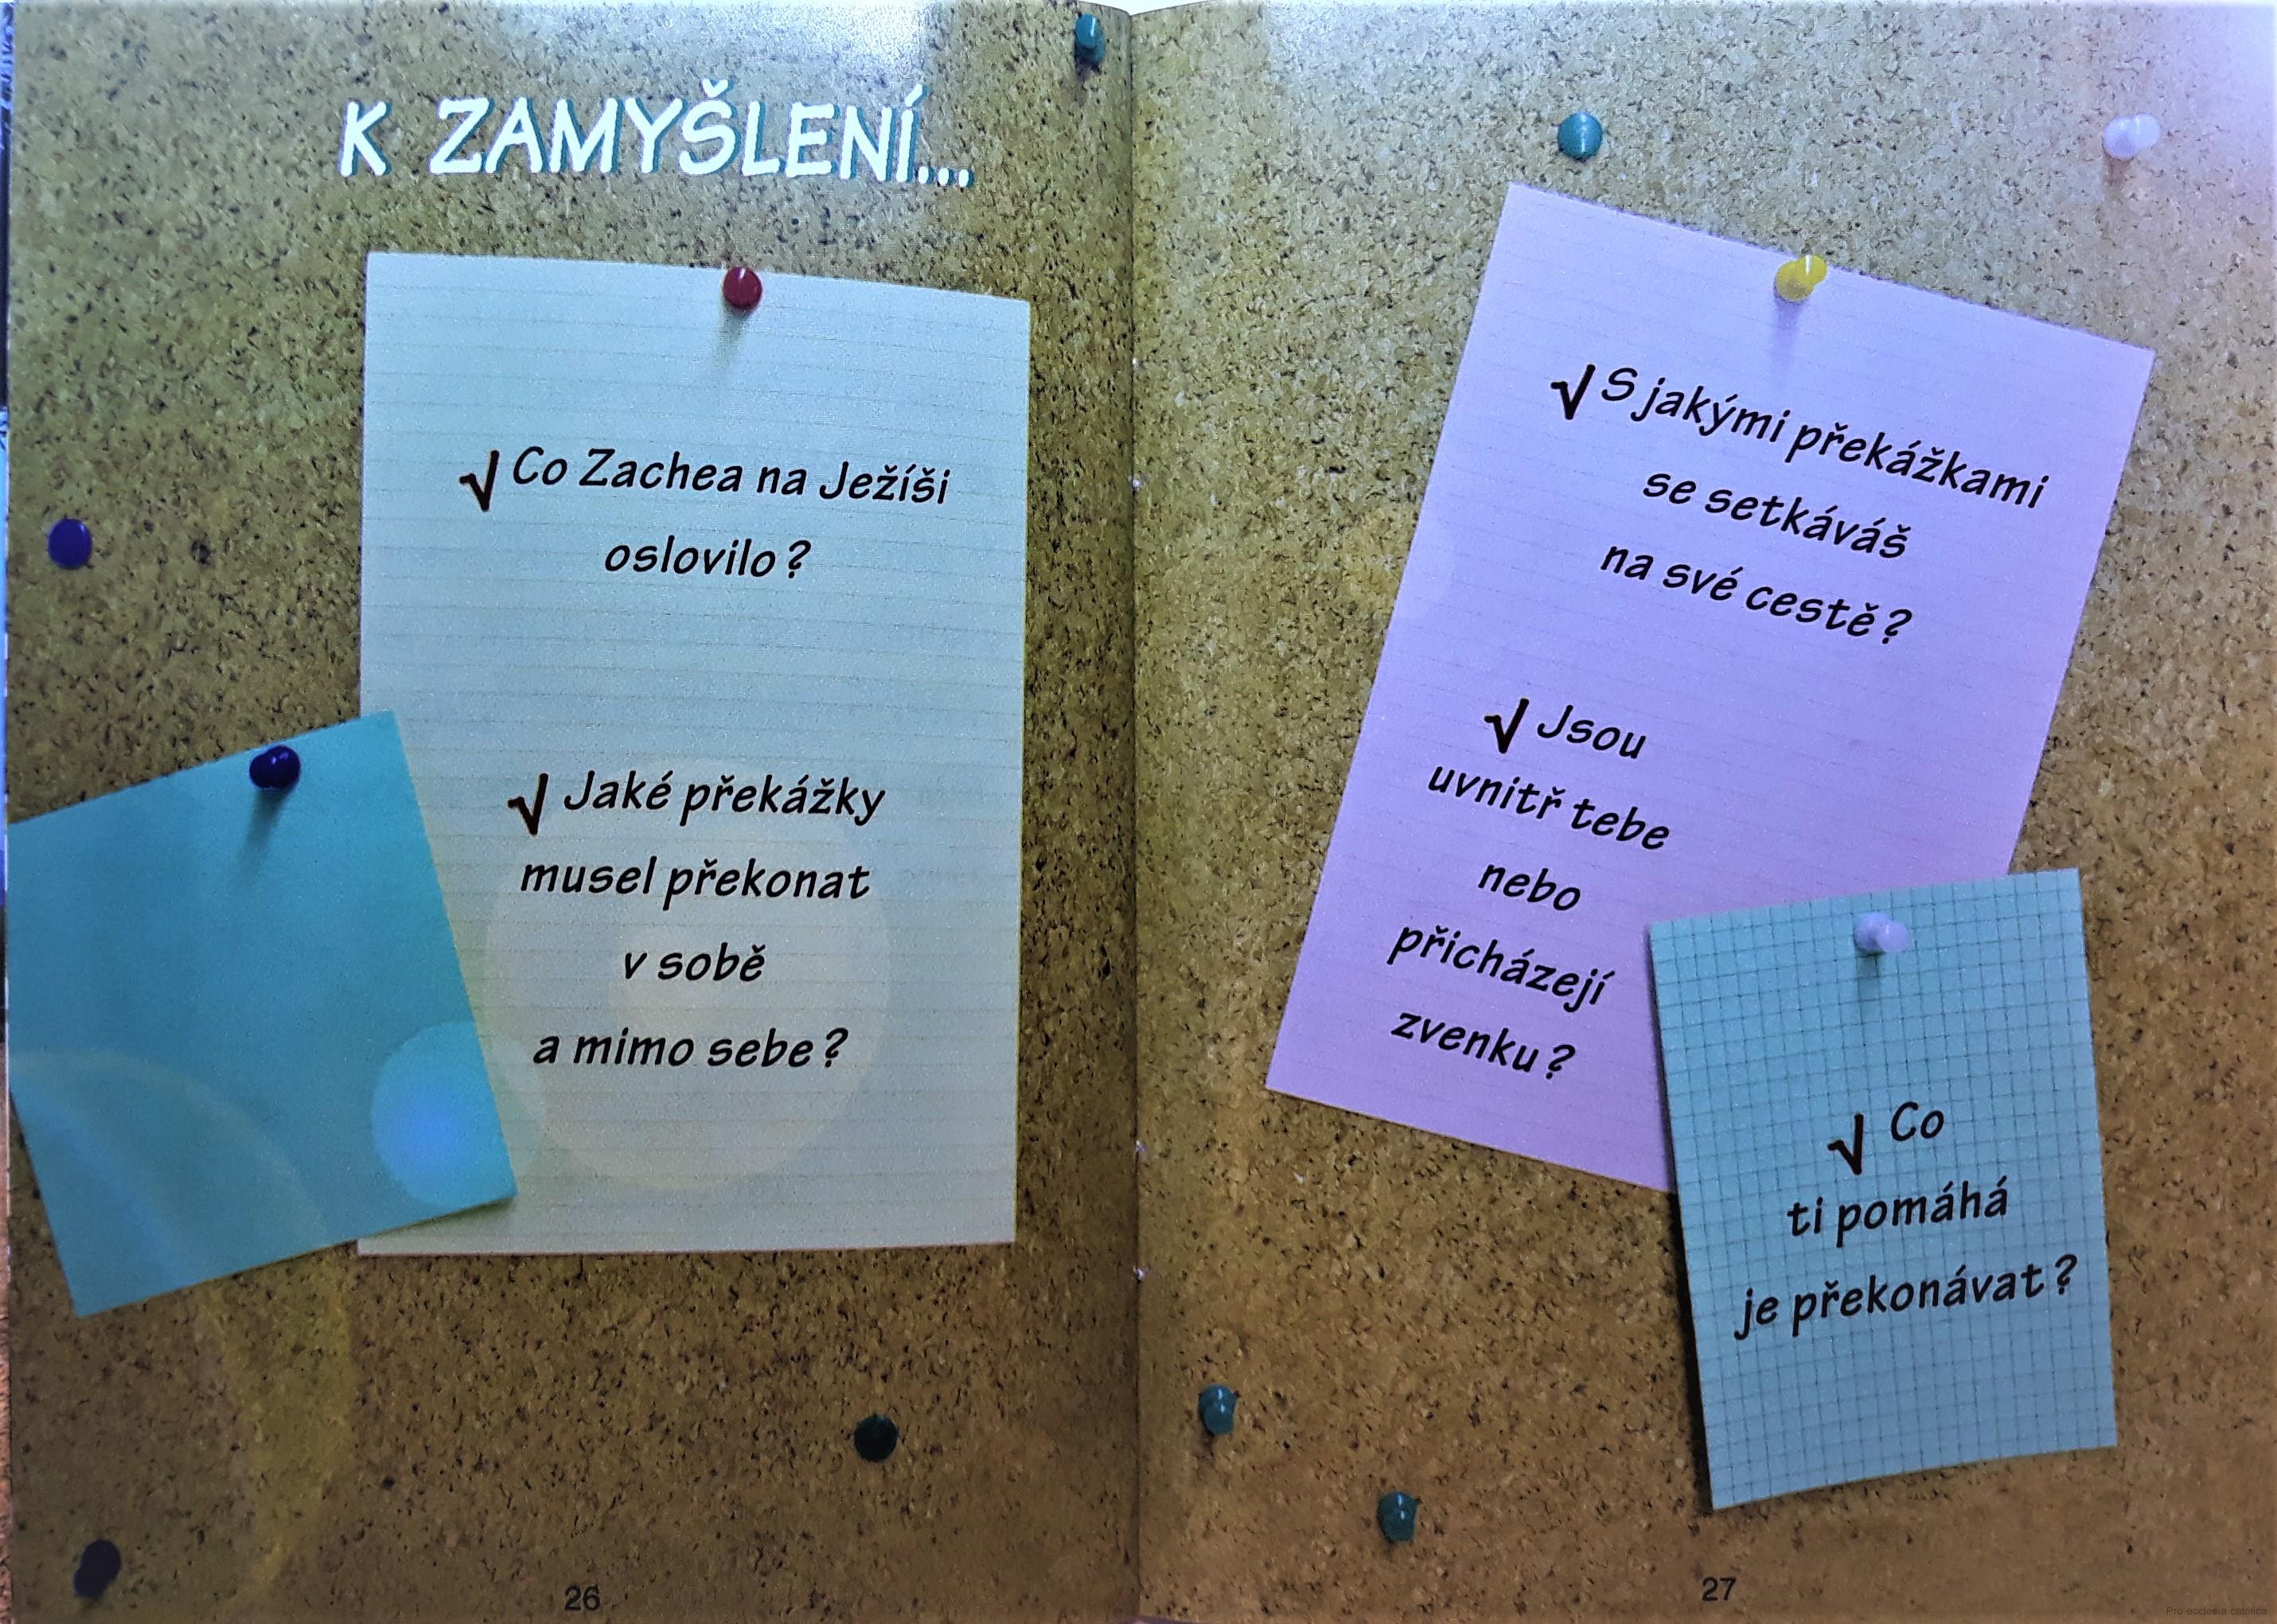 K ZAMYŠLENÍ...
√ Co Zachea na Ježíši
oslovilo?
√ Jaké překážky
musel překonat
v sobě
a mimo sebe?
26
√ S jakými překážkami
se setkáváš
na své cestě?
√ Jsou
uvnitř tebe
nebo
přicházejí
zvenku?
√ Co
ti pomáhá
je překonávat?
27
Pro ecclesia catolica